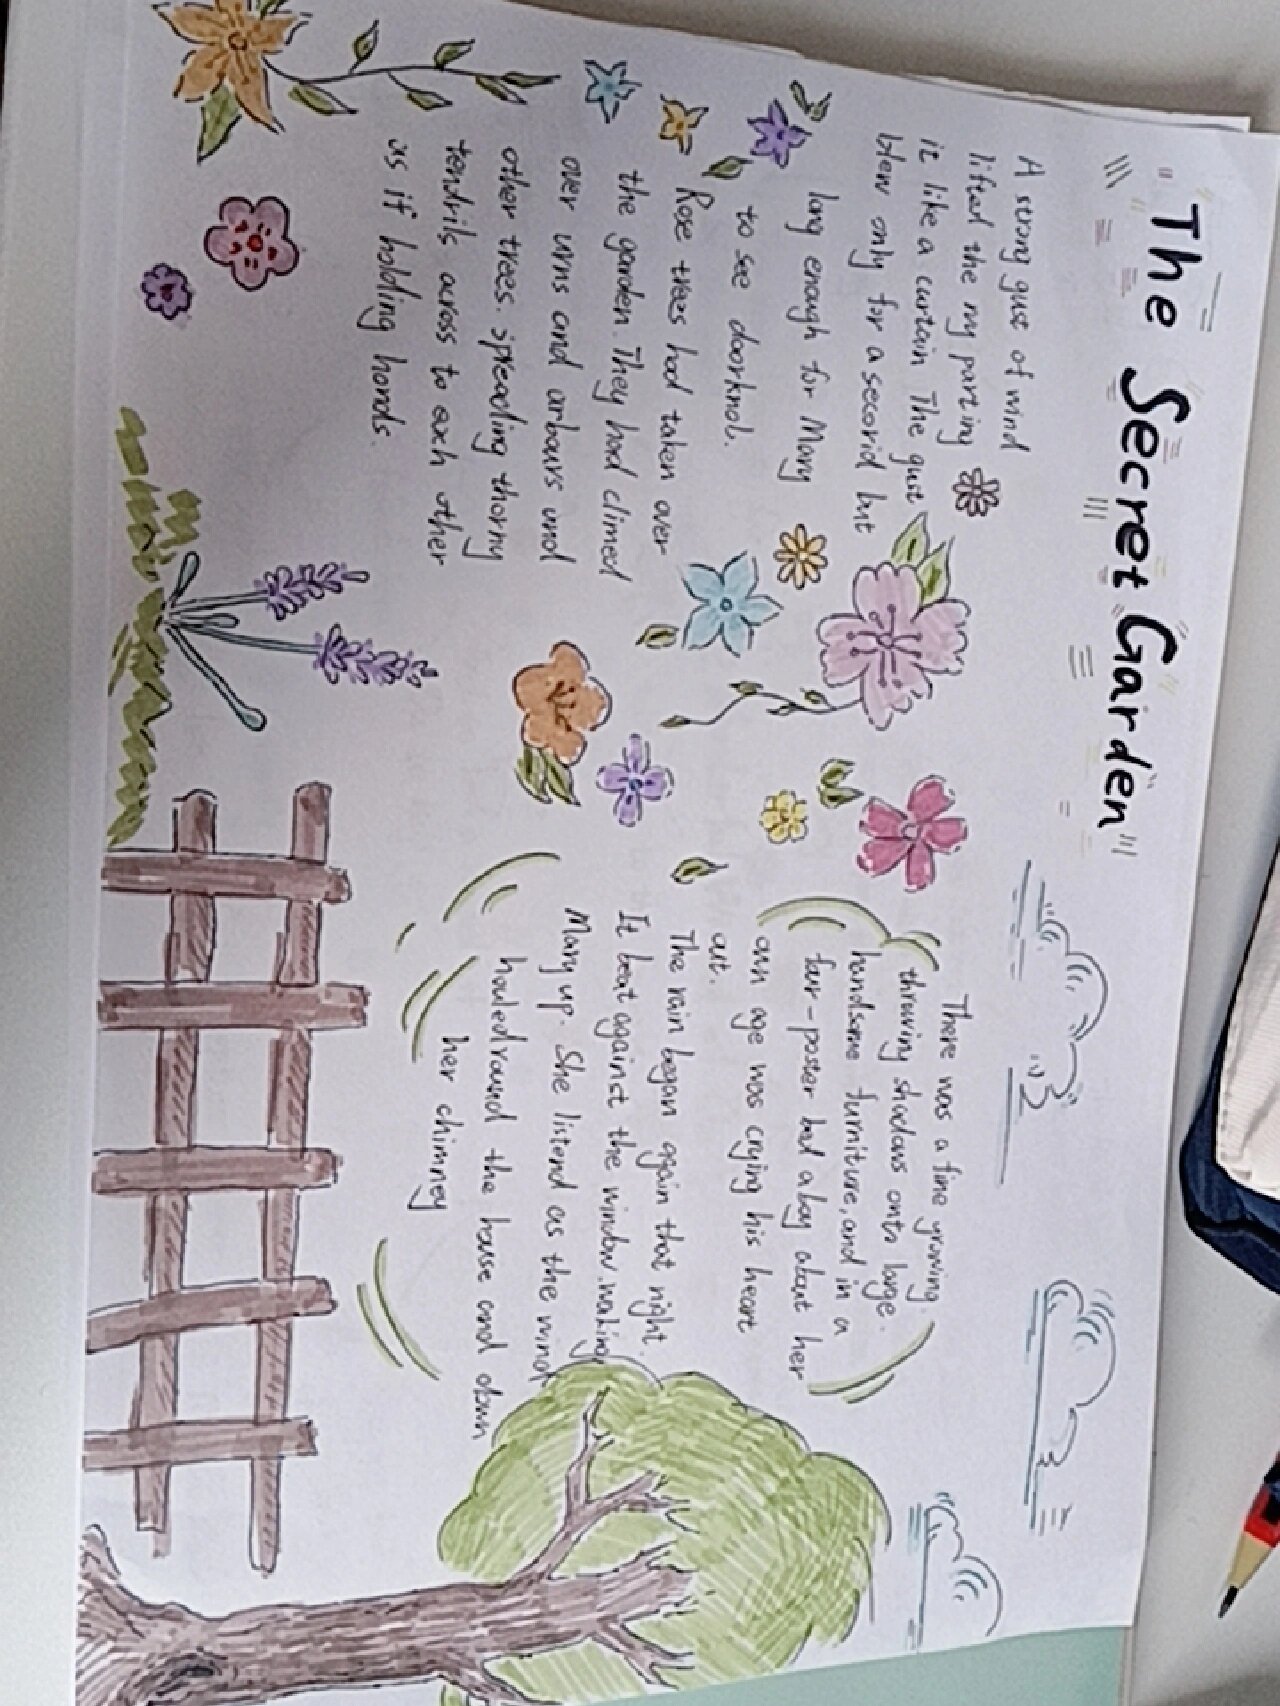 The Secret Garden
A strong gust of wind
lifted the my parting
it like a curtain The gust
blew only for a second but
long enough for Mary
to see doorknob.
Rose trees had taken over
the garden. They had climed
over urns and arbours and
other trees. spreading thorny
tendrils across to each other
as if holding hands.
There was a fine growing
throwing shadows onto large
handsome furniture, and in a
four-poster bed a boy about her
own age was crying his heart
out.
The rain began again that night.
It beat against the window. waking
Mary up. She listend as the wind
howled round the house and down
her chimney